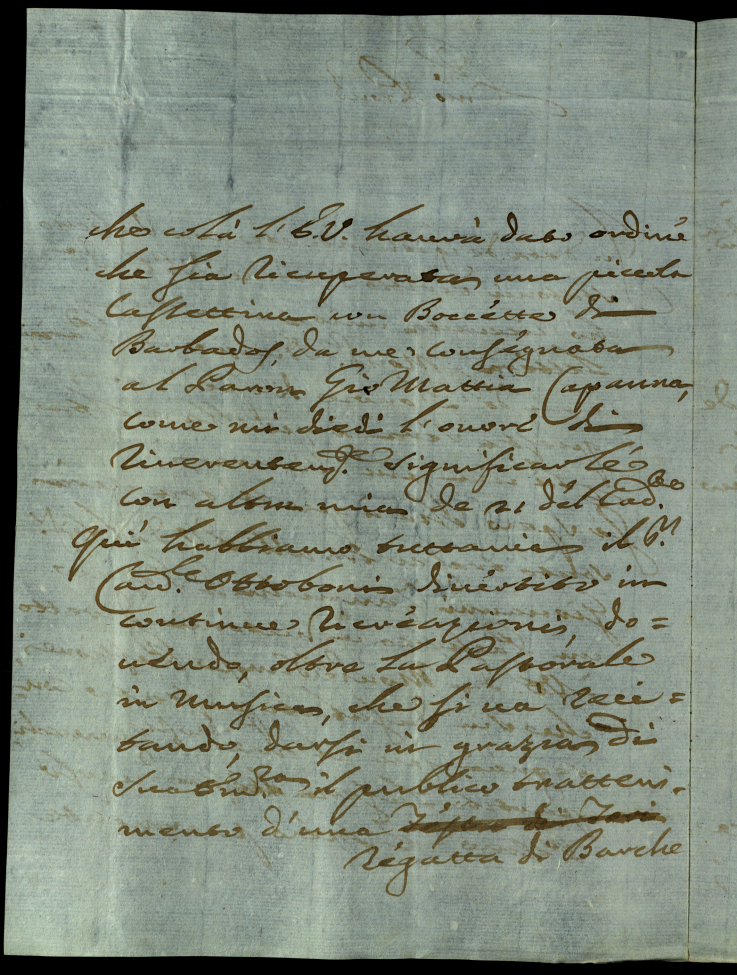 che colà l'E.V. haverà dato ordine
che sia ricuperata una picciola
Cassettina con Boccette di
Barbados, da me consignata
al Paron Gio Mattia Capanna,
come mi diedi l'onore di
riverentem.te significarle
con altra mia de 21 del cad.to
Quì habbiamo tuttavia il S.r
Card.le Ottoboni divertito in
continue ricreazioni, do=
vendo, oltre la Pastorale
in Musica, che si và reci=
tando, darsi in grazia di
Sua Em.za il publico tratteni=
mento d'una
Regatta di Barche